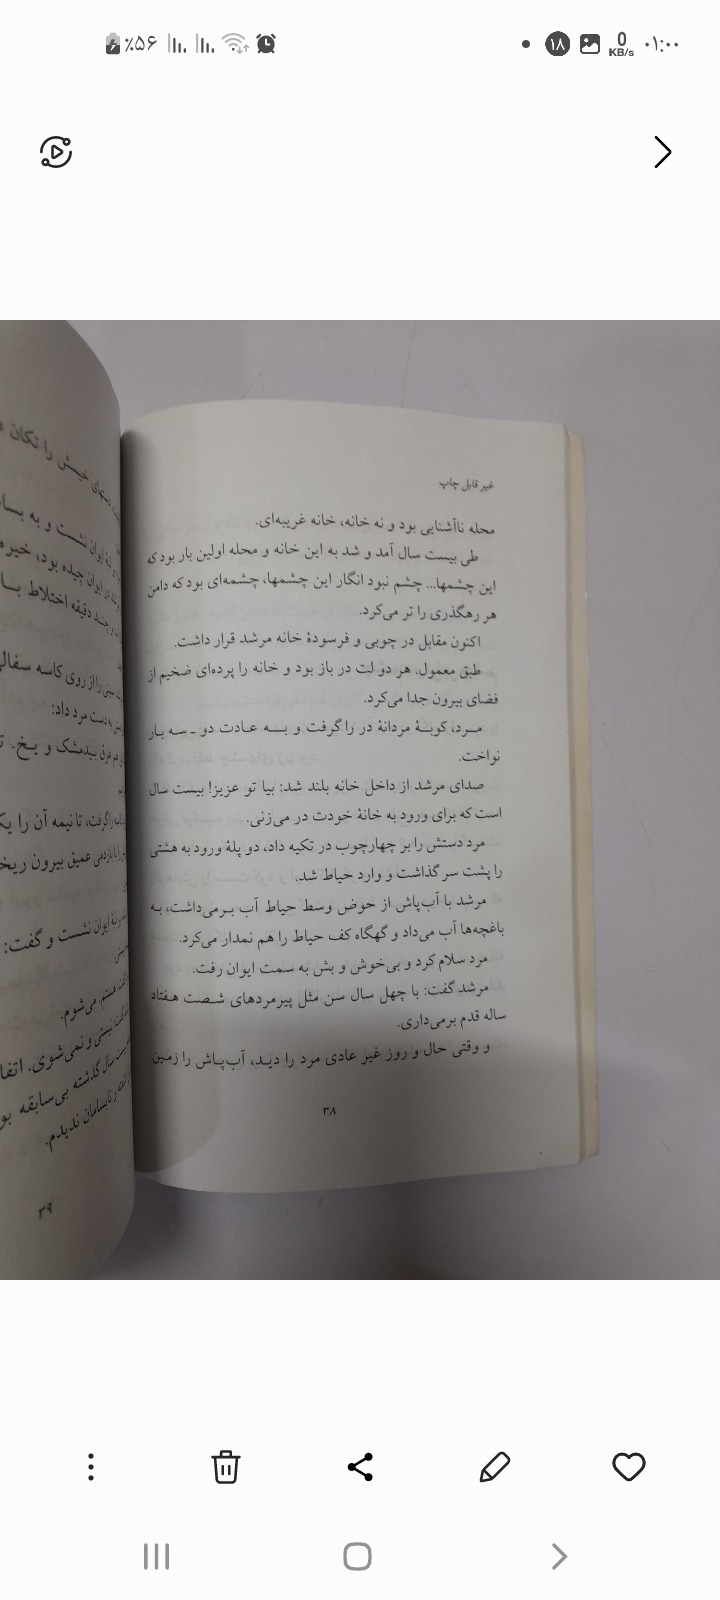 ٪۵۶
۱۸
0
KB/s
۰۱:۰۰
غیر قابل چاپ
محله ناآشنایی بود و نه خانه، خانه غریبه‌ای.
طی بیست سال آمد و شد به این خانه و محله اولین بار بود که
این چشمها... چشم نبود انگار این چشمها، چشمه‌ای بود که دامن
هر رهگذری را تر می‌کرد.
اکنون مقابل در چوبی و فرسودهٔ خانه مرشد قرار داشت.
طبق معمول. هر دو لت در باز بود و خانه را پرده‌ای ضخیم از
فضای بیرون جدا می‌کرد.
مرد، کوبهٔ مردانهٔ در را گرفت و به عادت دو ـ سه بار
نواخت.
صدای مرشد از داخل خانه بلند شد: بیا تو عزیز! بیست سال
است که برای ورود به خانهٔ خودت در می‌زنی.
مرد دستش را بر چهارچوب در تکیه داد، دو پلهٔ ورود به هشتی
را پشت سر گذاشت و وارد حیاط شد.
مرشد با آب‌پاش از حوض وسط حیاط آب برمی‌داشت، به
باغچه‌ها آب می‌داد و گهگاه کف حیاط را هم نمدار می‌کرد.
مرد سلام کرد و بی‌خوش و بش به سمت ایوان رفت.
مرشد گفت: با چهل سال سن مثل پیرمردهای شصت هفتاد
ساله قدم برمی‌داری.
و وقتی حال و روز غیر عادی مرد را دید، آب‌پاش را زمین
۳۸
خیسش را تکان
ایوان نشست و به
ایوان چیده بود،
دقیقه اختلاط
را از روی کاسه
به دست مرد داد:
عرق بیدمشک و یخ.
را گرفت، تا نیمه آن را
بازدمی عمیق بیرون
ایوان نشست و گفت:
هستم. می‌شوم.
نیستی و نمی‌شوی.
بیست سال گذشته بی‌سابقه
و نابسامان ندیدم.
۳۹